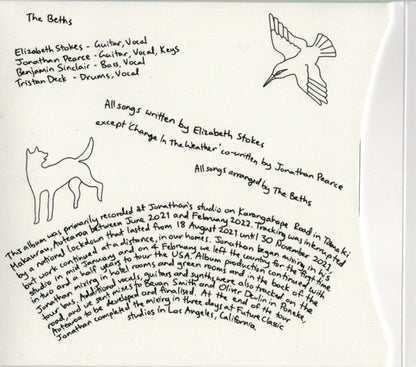 The Beths
Elizabeth Stokes - Guitar, Vocal
Jonathan Pearce - Guitar, Vocal, Keys
Benjamin Sinclair - Bass, Vocal
Tristan Deck - Drums, Vocal
All songs written by Elizabeth Stokes
except 'Change In The Weather' co-written by Jonathan Pearce
All songs arranged by The Beths
This album was primarily recorded at Jonathan's studio on Karangahape Road in Tāmaki
Makaurau, Aotearoa between June 2021 and February 2022. Tracking was interrupted
by a national lockdown that lasted from 18 August 2021 until 30 November 2021,
but work continued at a distance, in our homes. Jonathan began mixing in his
studio in mid January and on 4 February we left the country for the first time
in two and a half years to tour the USA. Album production continued with
Jonathan mixing in hotel rooms and green rooms and in the back of the
tour van. Additional vocals, guitars and synth were also tracked on the
road, and we sent mixes to Bevan Smith and Oliver Devlin in Pōneke,
Aotearoa to be developed and finalised. At the end of the tour
Jonathan completed the mixing in three days at Future Classic
studios in Los Angeles, California